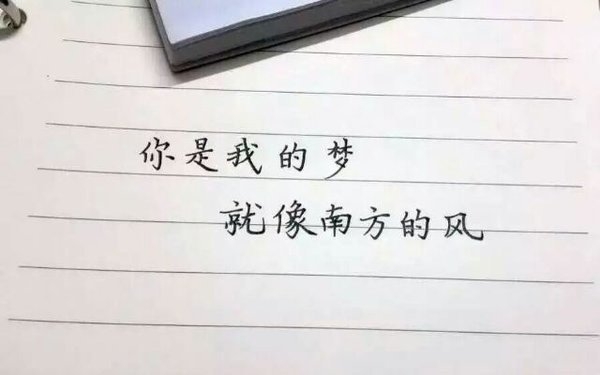 你是我的梦
就像南方的风